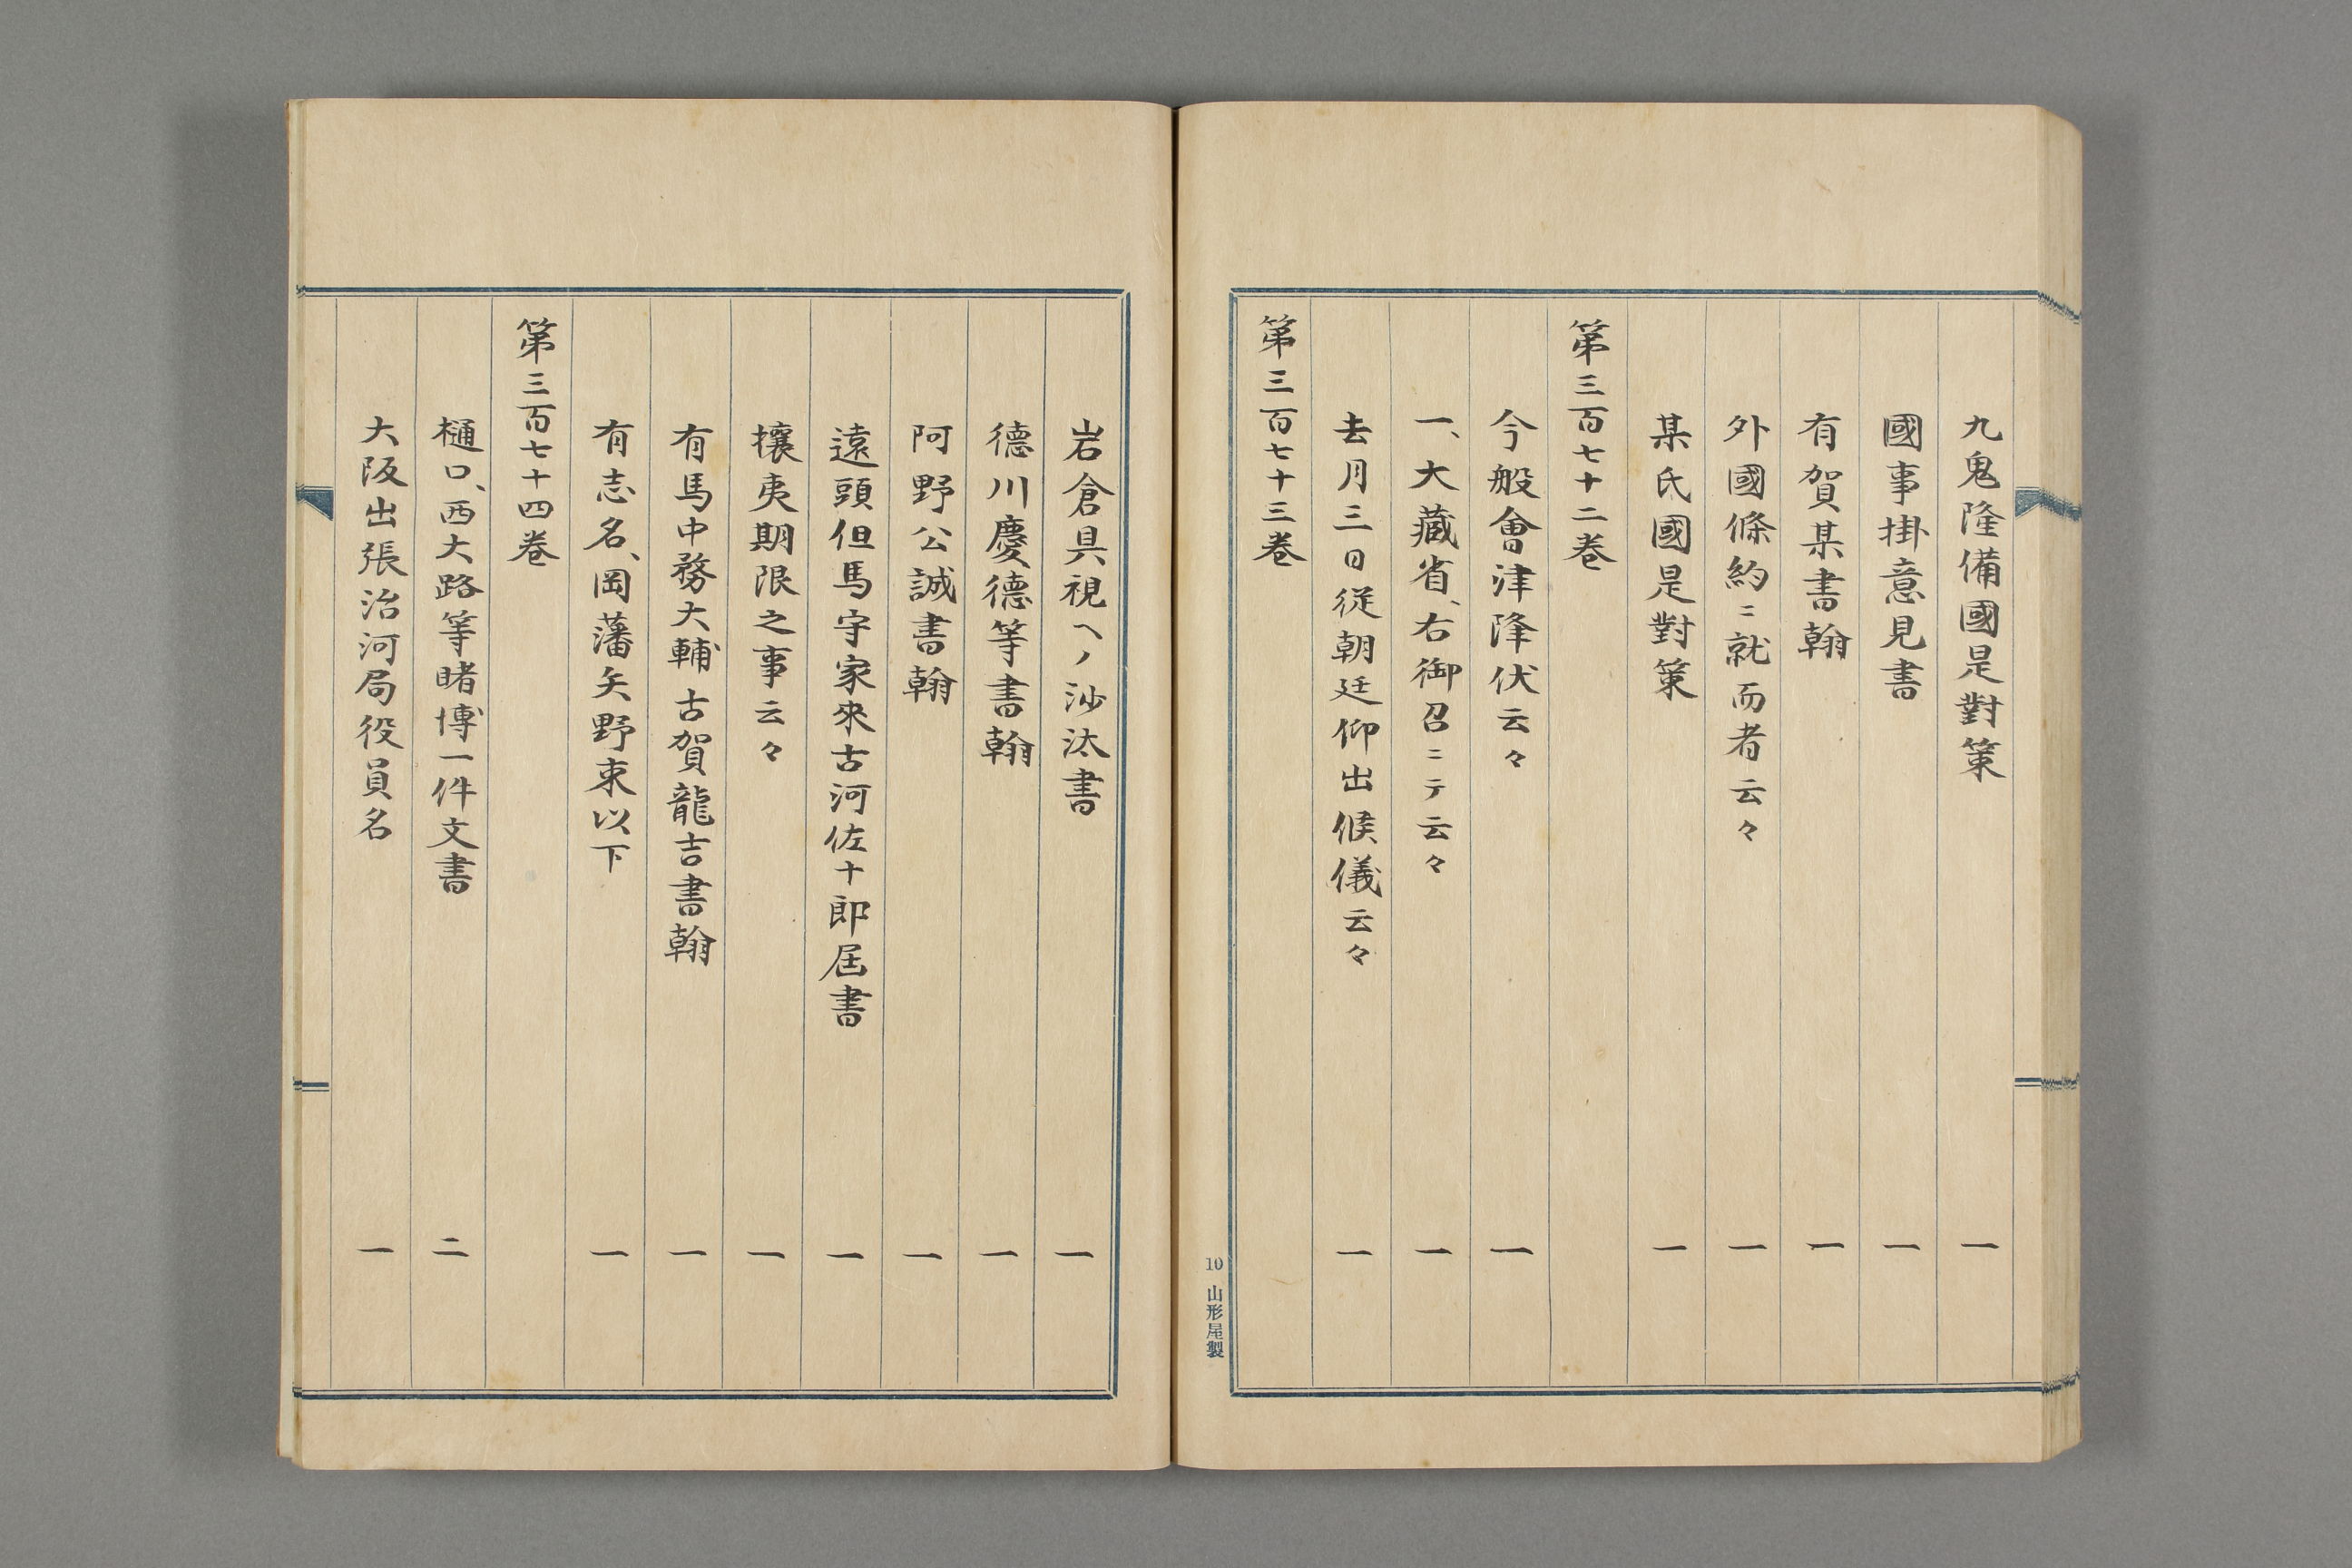 九鬼隆備國是對策 一
國事掛意見書 一
有賀某書翰 一
外國條約ニ就而者云々 一
某氏國是對策 一
第三百七十二卷
今般會津降伏云々 一
一、大藏省、右御召ニテ云々 一
去月三日従朝廷仰出候儀云々 一
第三百七十三卷
10 山形屋製
岩倉具視ヘノ沙汰書 一
德川慶德等書翰 一
阿野公誠書翰 一
遠頭但馬守家來古河佐十郎届書 一
攘夷期限之事云々 一
有馬中務大輔古賀龍吉書翰 一
有志名、岡藩矢野束以下 一
第三百七十四卷
樋口、西大路等睹博一件文書 二
大阪出張治河局役員名 一